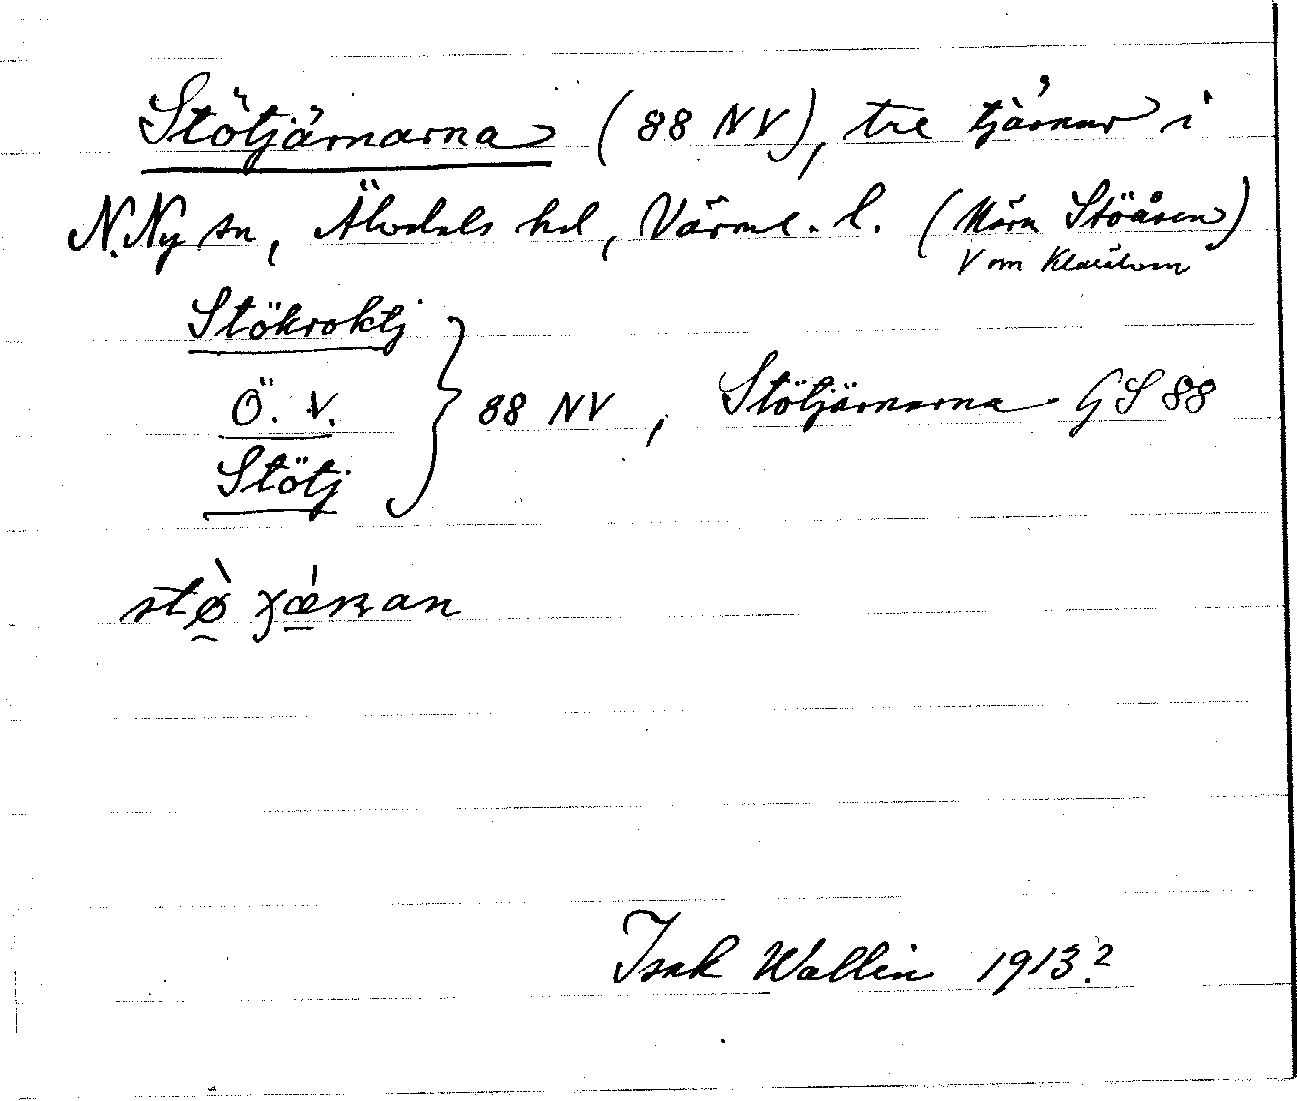 Stötjärnarna (88 NV), tre tjärnar i
N. Ny sn, Älvdals hd, Värml. l. (Nära Stöåsen)
V om Klarälven
Stökroktj
Ö. V. } 88 NV, Stötjärnarna GS 88
Stötj
Isak Wallin 1913?